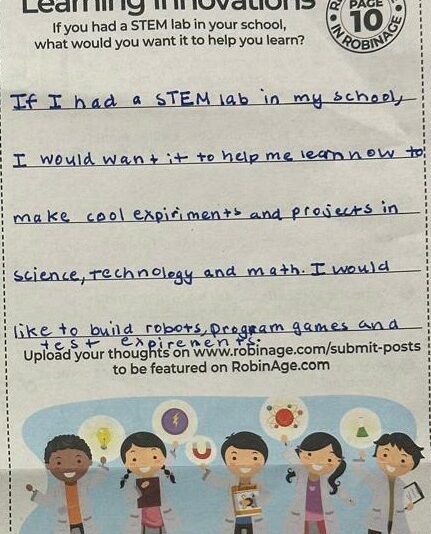 Learning Innovations
PAGE
10
IN ROBINAGE
If you had a STEM lab in your school,
what would you want it to help you learn?
If I had a STEM lab in my school,
I would want it to help me learn how to
make cool expiriments and projects in
science, technology and math. I would
like to build robots, program games and
test expirements.
Upload your thoughts on www.robinage.com/submit-posts
to be featured on RobinAge.com